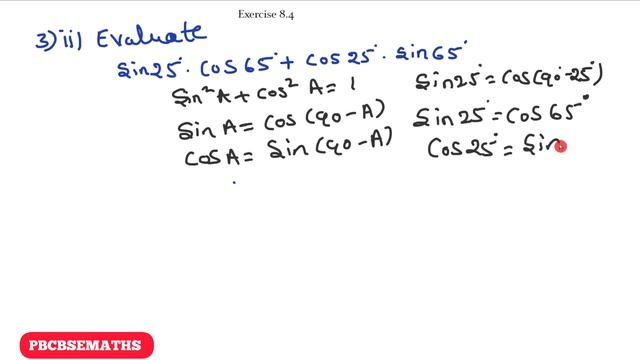 Exercise 8.4
3) ii) Evaluate
Sin25°. Cos 65° + Cos 25°. Sin 65°
Sin² A + Cos² A = 1
Sin A = Cos (90 - A)
Cos A = Sin (90 - A)
Sin 25° = Cos (90° - 25°)
Sin 25° = Cos 65°
Cos 25° = Sin
PBCBSEMATHS